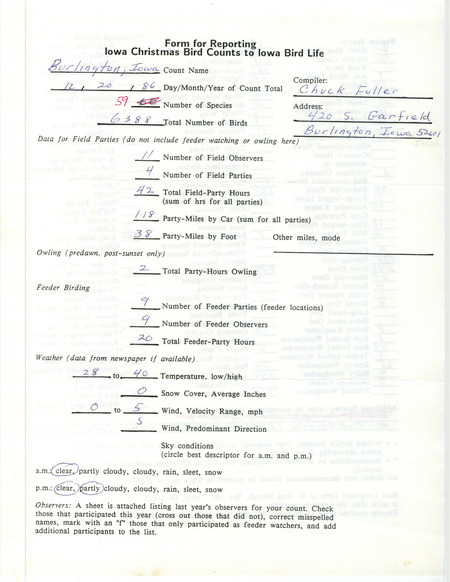 Form for Reporting
Iowa Christmas Bird Counts to Iowa Bird Life
Burlington, Iowa Count Name
12, 20, 86 Day/Month/Year of Count Total
Compiler:
Chuck Fuller
59 60 Number of Species
Address:
420 S. Garfield
6388 Total Number of Birds
Burlington, Iowa 52601
Data for Field Parties (do not include feeder watching or owling here)
11 Number of Field Observers
4 Number of Field Parties
42 Total Field-Party Hours
(sum of hrs for all parties)
118 Party-Miles by Car (sum for all parties)
38 Party-Miles by Foot Other miles, mode
Owling (predawn, post-sunset only)
2 Total Party-Hours Owling
Feeder Birding
9 Number of Feeder Parties (feeder locations)
9 Number of Feeder Observers
20 Total Feeder-Party Hours
Weather (data from newspaper if available)
28 to 40 Temperature, low/high
0 Snow Cover, Average Inches
0 to 5 Wind, Velocity Range, mph
S Wind, Predominant Direction
Sky conditions
(circle best descriptor for a.m. and p.m.)
a.m.: clear, partly cloudy, cloudy, rain, sleet, snow
p.m.: clear, partly cloudy, cloudy, rain, sleet, snow
Observers: A sheet is attached listing last year's observers for your count. Check
those that participated this year (cross out those that did not), correct misspelled
names, mark with an "f" those that only participated as feeder watchers, and add
additional participants to the list.